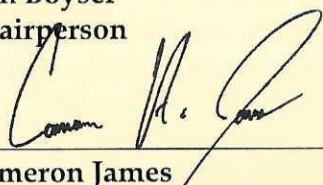 Boyser
airperson
meron James